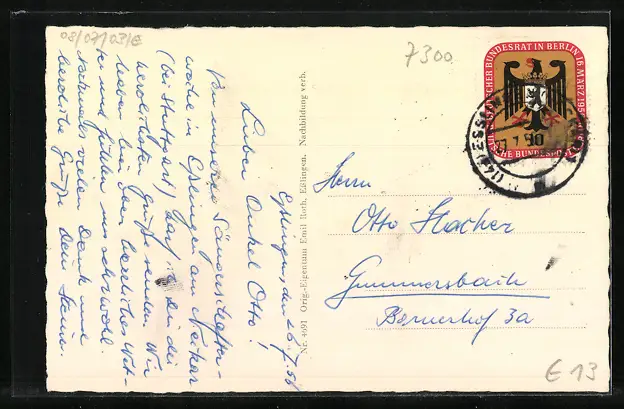 08/07/03/E
7300
DEUTSCHER BUNDESRAT IN BERLIN 16. MÄRZ 195
DEUTSCHE BUNDESPOST
10
(14a) ESSLINGEN
Esslingen, den 26.7.56
Lieber Onkel Otto!
Von unserer Sängerschaffer-
woche in Esslingen am Neckar
(bei Stuttgart) darf ich Dir die
herzlichsten Grüße senden. Wir
haben hier
herrliches Wet-
ter und fühlen uns sehr wohl.
Nochmals vielen Dank und
herzliche Grüße Dein Hans.
Nr. 4691 Orig.-Eigentum Emil Roth, Eßlingen. Nachbildung verb.
Herrn
Otto Stacher
Gummersbach
Bernerhof 3a
E 13